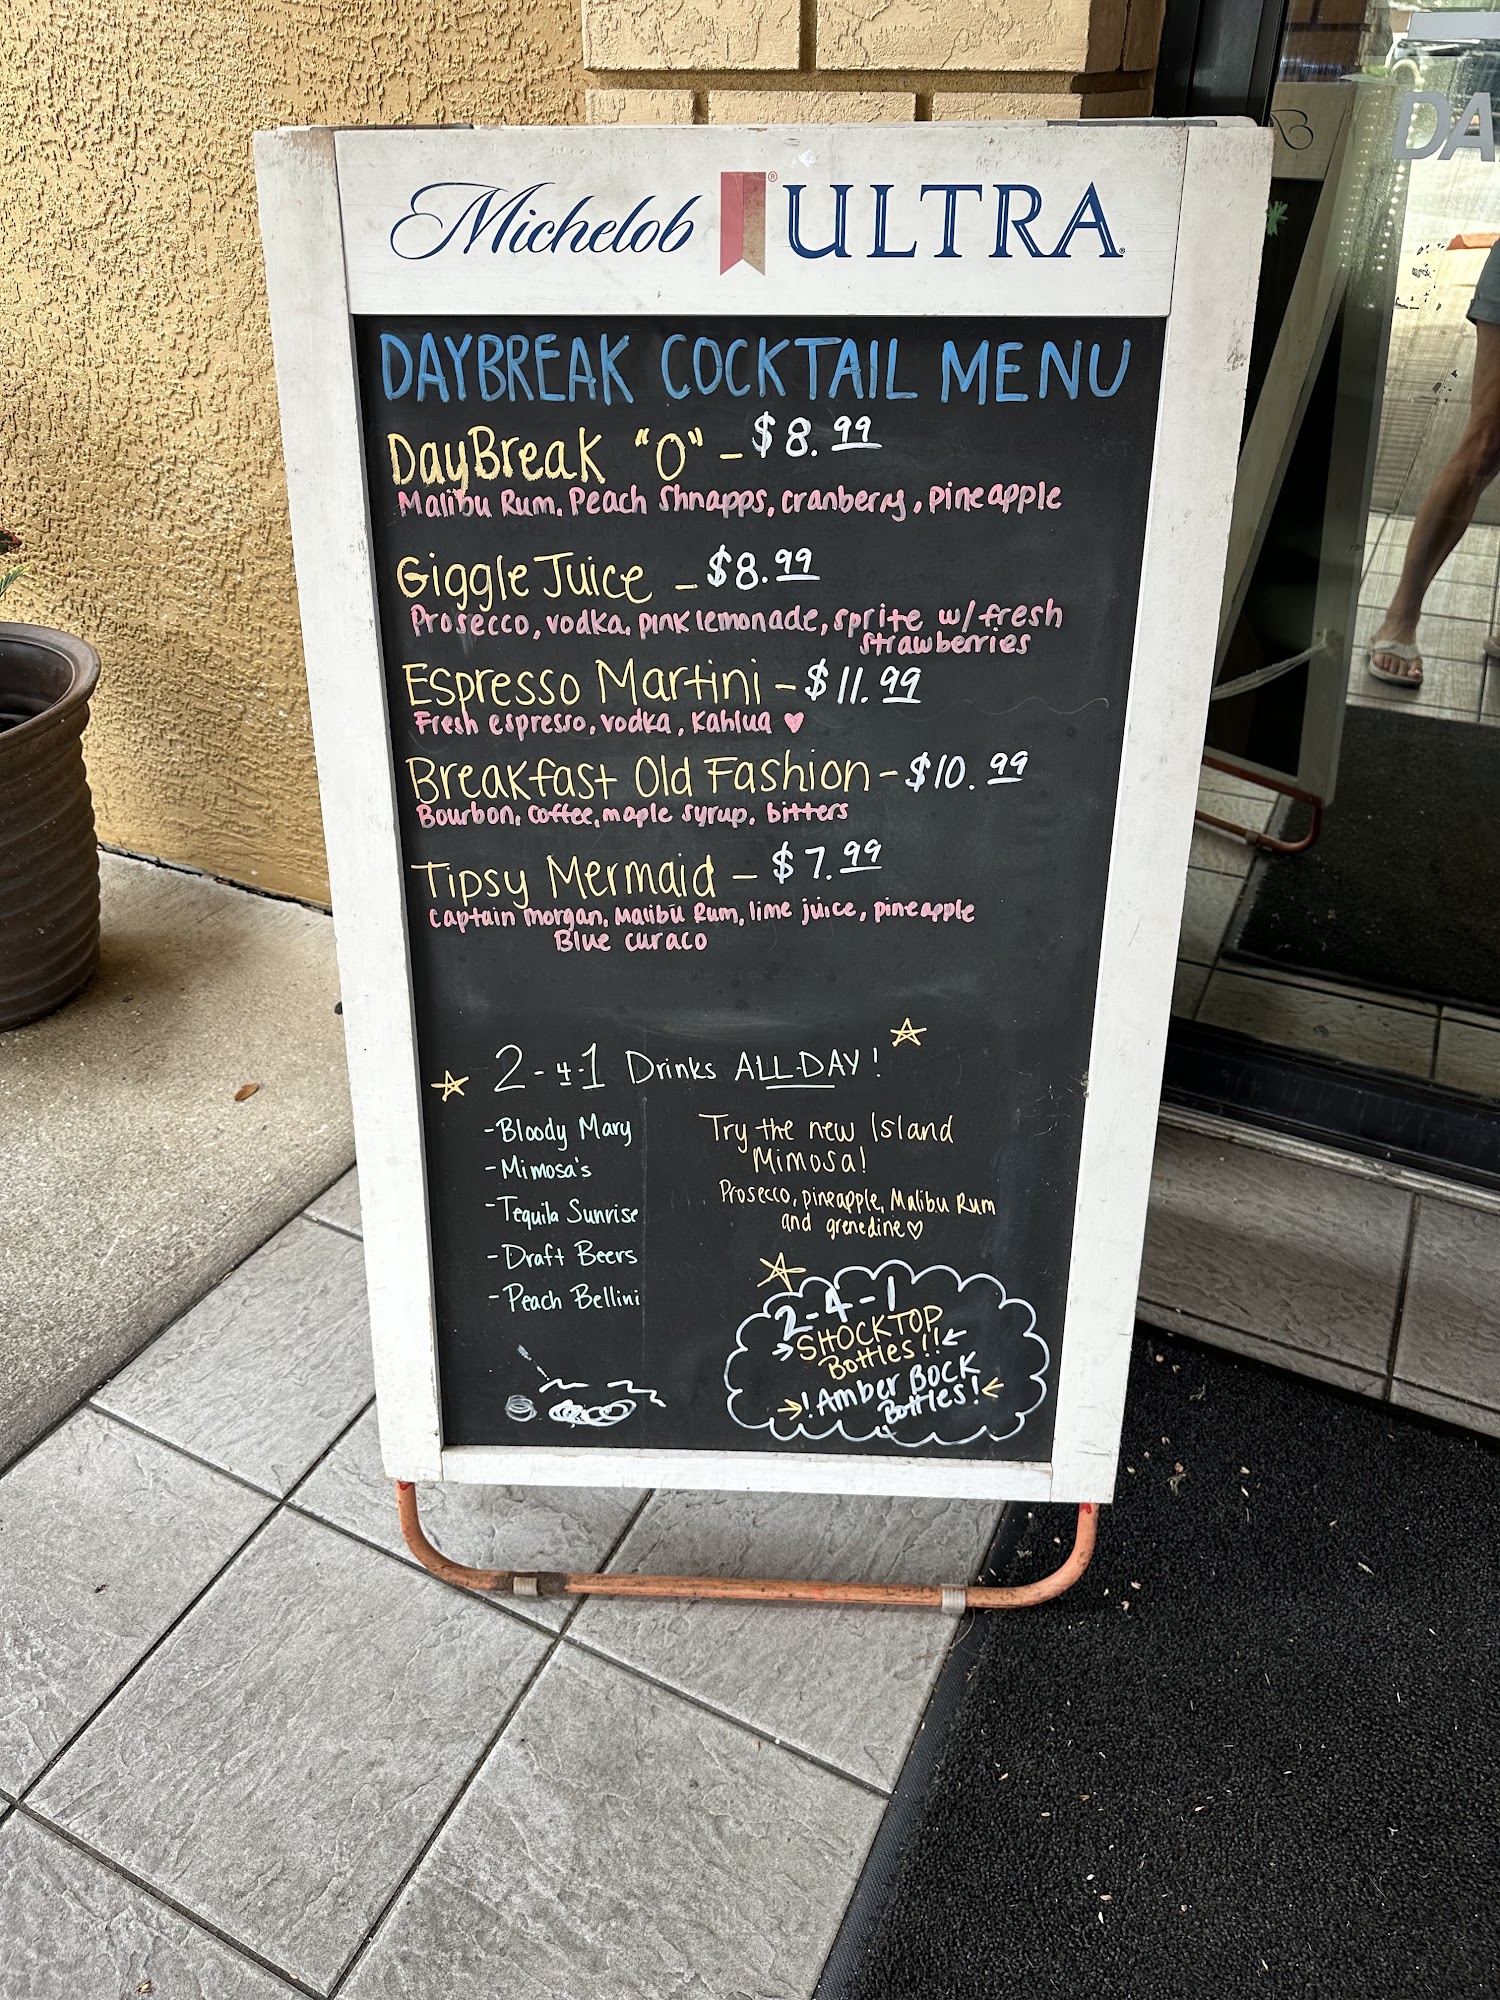 Michelob ULTRA
DAYBREAK COCKTAIL MENU
DayBreak "O" - $8.99
Malibu Rum, Peach Shnapps, cranberry, pineapple
Giggle Juice - $8.99
Prosecco, vodka, pink lemonade, sprite w/ fresh
strawberries
Espresso Martini - $11.99
Fresh espresso, vodka, Kahlua ♥
Breakfast Old Fashion - $10.99
Bourbon, coffee, maple syrup, bitters
Tipsy Mermaid - $7.99
Captain morgan, Malibu Rum, lime juice, pineapple
Blue curaco
2-4-1 Drinks ALL-DAY!
-Bloody Mary
-Mimosa's
-Tequila Sunrise
-Draft Beers
-Peach Bellini
Try the new Island
Mimosa!
Prosecco, pineapple, Malibu Rum
and grenedine ♡
2-4-1
→SHOCKTOP
Bottles!!←
→!Amber BOCK
Bottles!←
DA